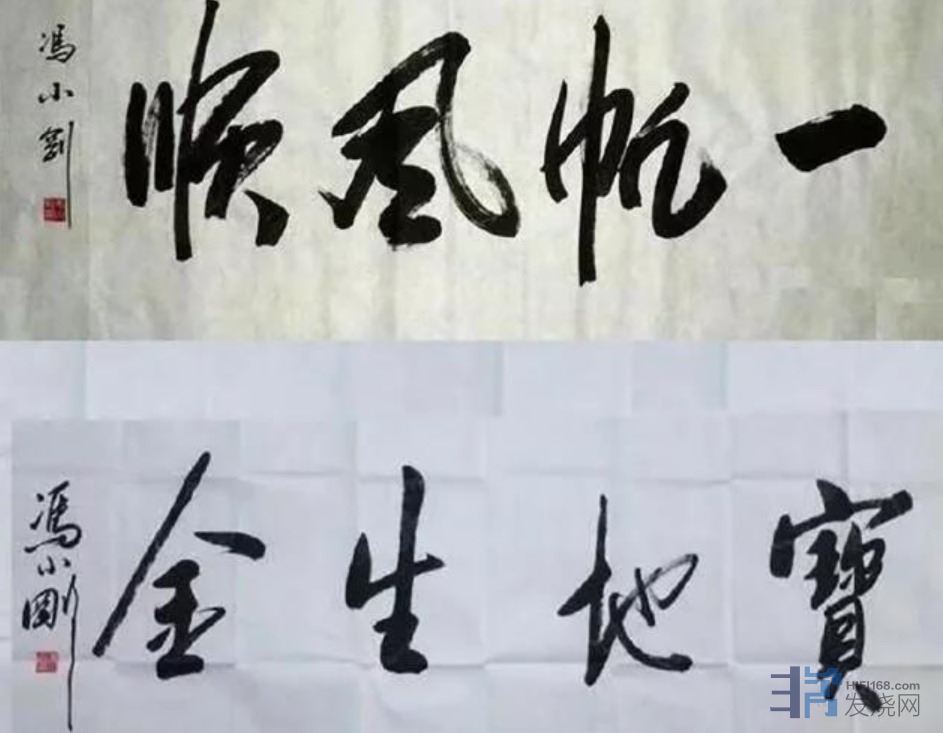 一帆風順
馮小
寶地生金
馮小剛
HIFI168.com
发烧网